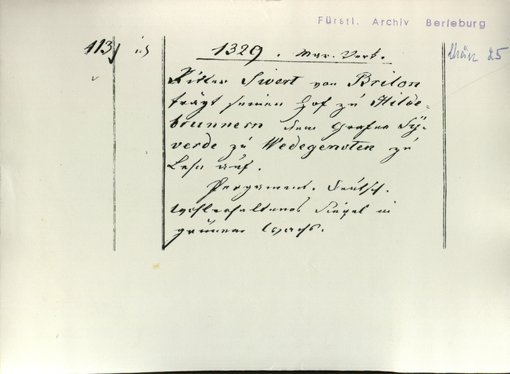 Fürstl. Archiv Berleburg
113 1329. Mar. Verk.
März 25
Ritter Sivert von Brilon
trägt seinen Hof zu Hilde-
brunnern dem Grafen Sy-
verde zu Wedegensten zu
Lehn auf.
Pergament. Deutsch.
Wohlerhaltenes Siegel in
grünem Wachs.